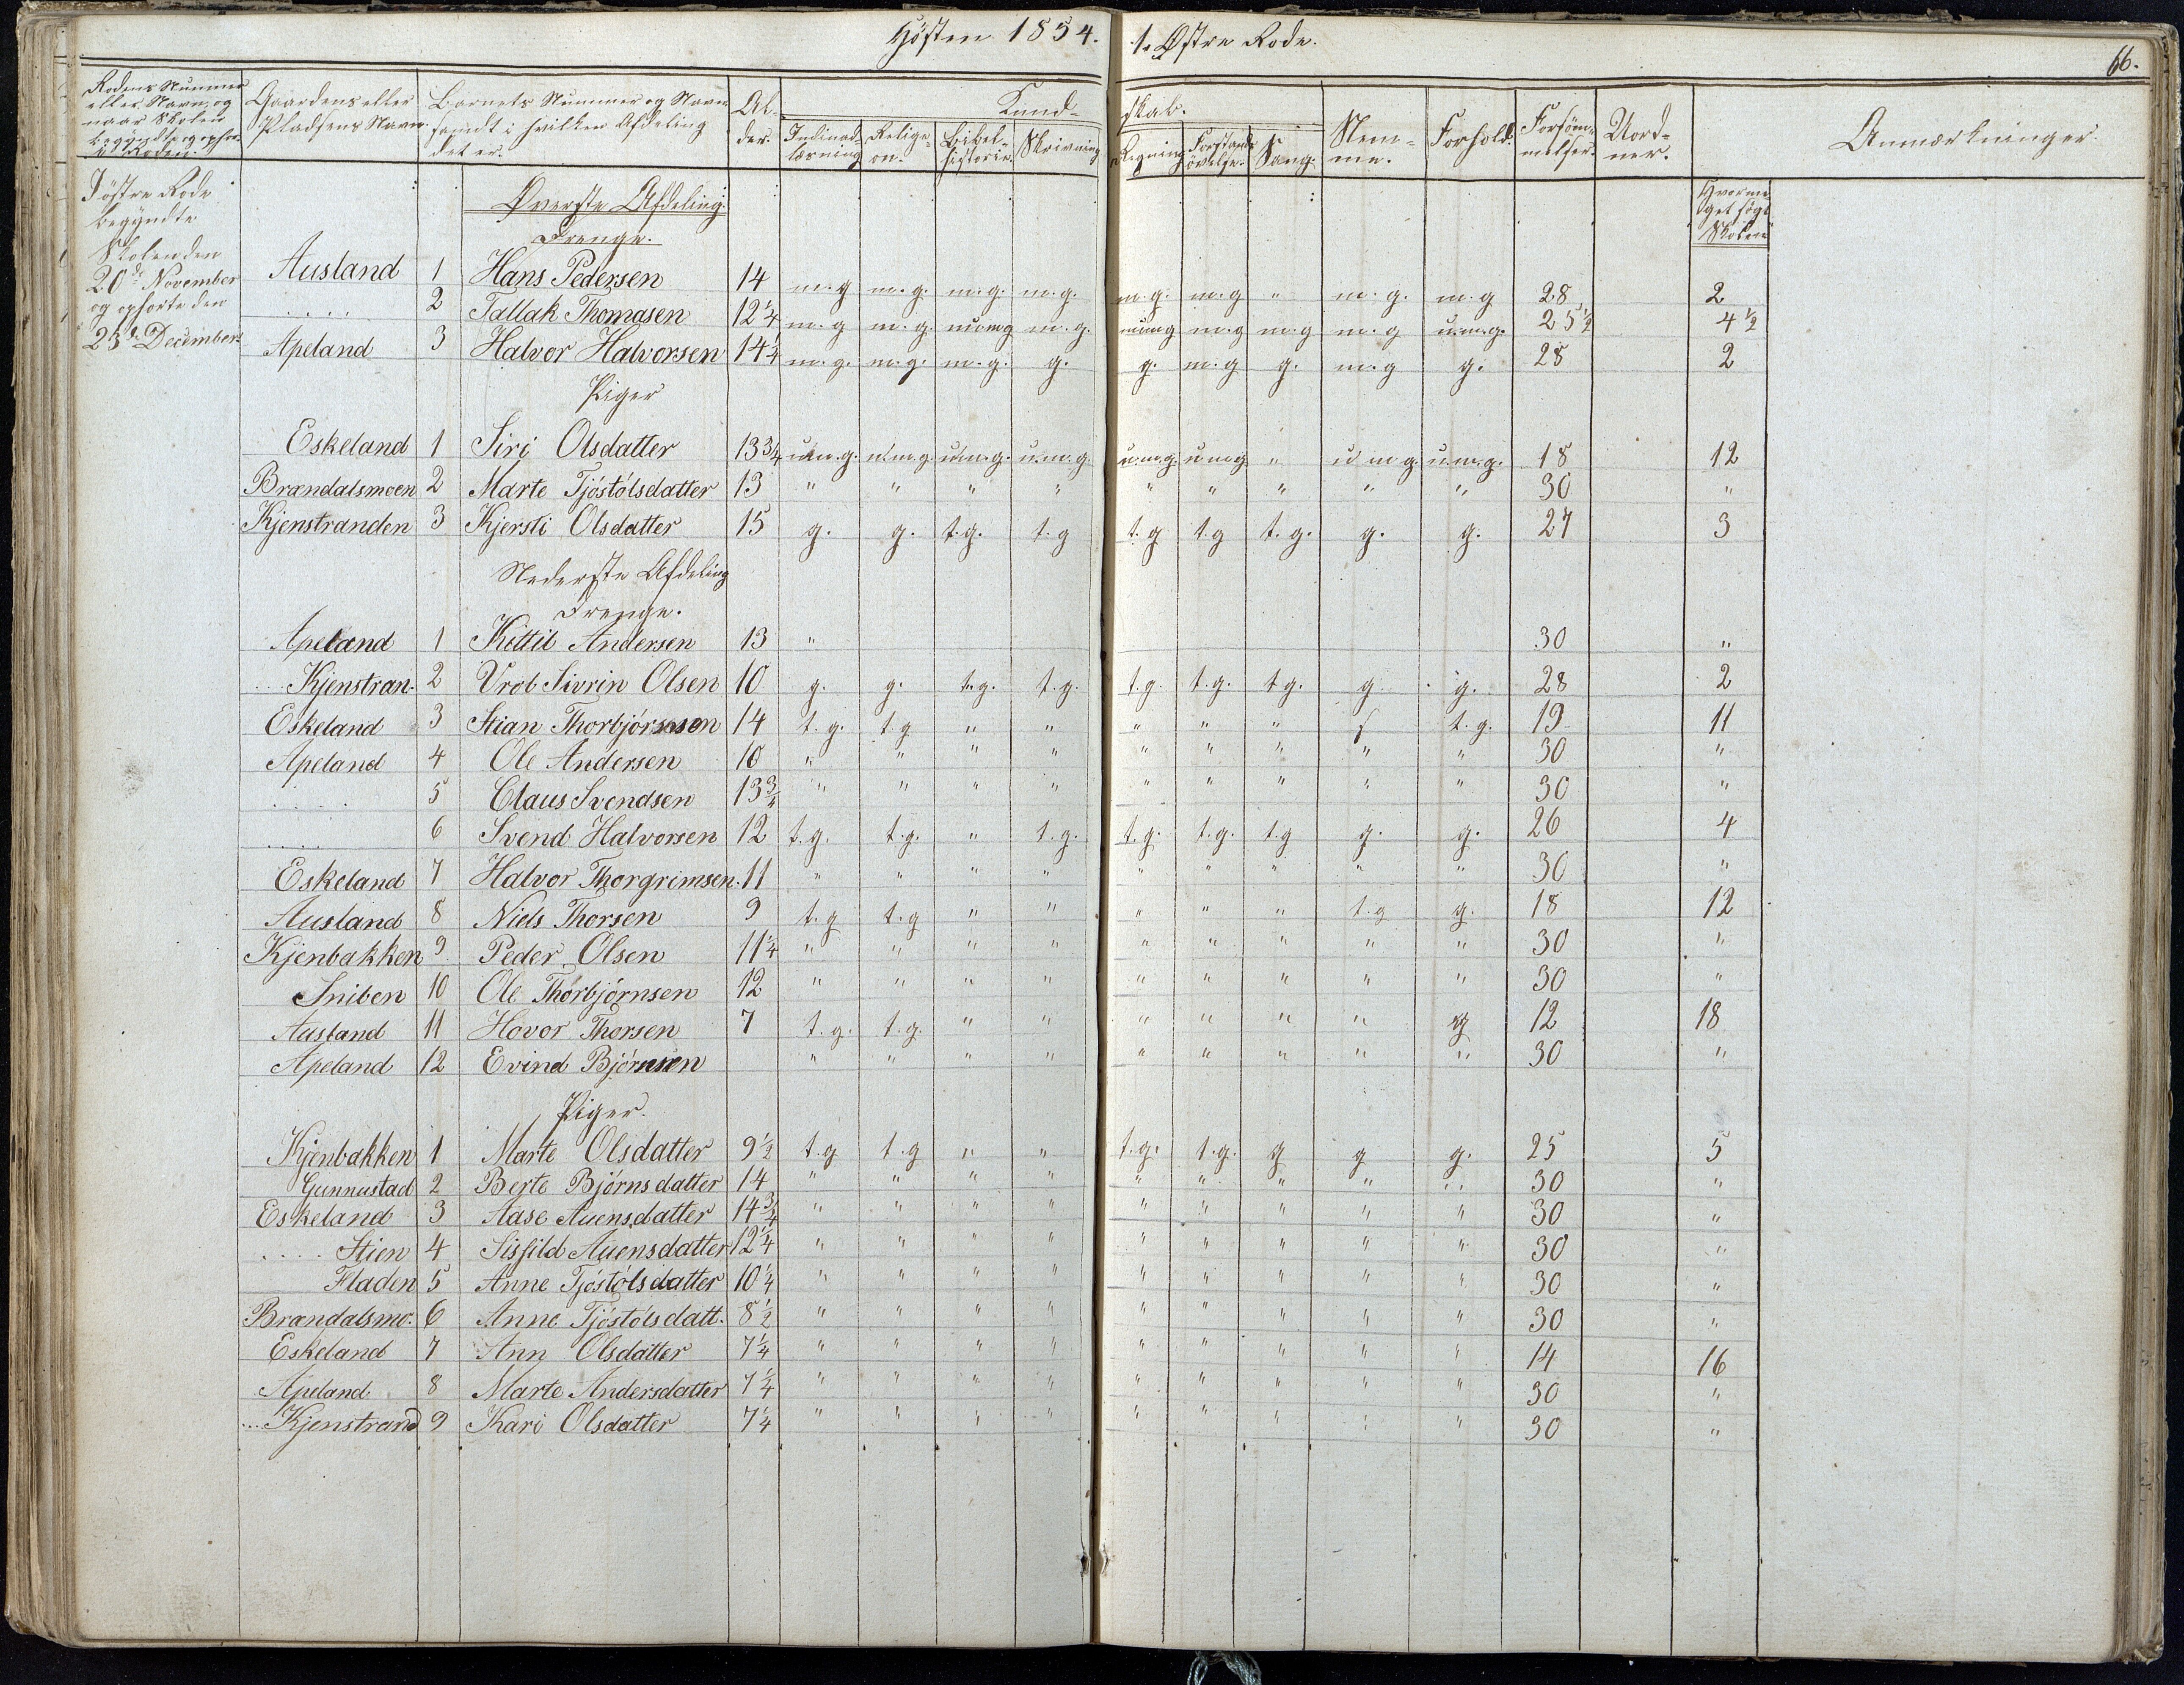 Høsten 1854. 1. Østre Rode.
66.
Rodens Nummer eller Navn, og naar Skolen begyndte og ophørte i Roden. | Gaardens eller Pladsens Navn. | Barnets Nummer og Navn samt i hvilken Afdeling det er. | Alder. | Kundskab. | Nemme. | Forhold. | Forsømmelser. | Uordner. | Anmærkninger
Indenadlæsning | Religion. | Bibelhistorie. | Skrivning | Regning | Forstandsøvelse. | Sang.
I østre Rode
begyndte
Skolen den
20de November
og ophørte den
23de December.
Hvormeget søgt Skolen
Øverste Afdeling.
Drenge.
Ausland 1 Hans Pedersen 14 m.g m.g. m.g. m.g. m.g. m.g " m.g. m.g 28 2
..... 2 Tallak Thomasen 12 1/4 m.g m.g. numg m.g. numg m.g m.g m.g u.m.g. 25 1/2 4 1/2
Apeland 3 Halvor Halvorsen 14 1/4 m.g. m.g. m.g. g. g. m.g g. m.g g. 28 2
Piger
Eskeland 1 Siri Olsdatter 13 3/4 u.m.g. u.m.g. u.m.g. u.m.g. u.m.g. u m g " u m g. u.m.g. 18 12
Brændalsmoen 2 Marte Tjöstólsdatter 13 " " " " " " " " " 30 "
Kjenstranden 3 Kjersti Olsdatter 15 g. g. t.g. t.g t.g t.g t.g. g. g. 27 3
Nederste Afdeling
Drenge.
Apeland 1 Kittil Andersen 13 " 30 "
... Kjenstran. 2 Vrol Sivrin Olsen 10 g. g. t.g. t.g. t.g. t.g. t.g. g g. 28 2
Eskeland 3 Stian Thorbjörnsen 14 t.g. t.g " " " " " g t.g. 19 11
Apeland 4 Ole Andersen 10 " " " " " " " " " 30 "
.... 5 Claus Svendsen 13 3/4 " " " " " " " " " 30 "
.... 6 Svend Halvorsen 12 t.g. t.g. " t.g. t.g. t.g. t.g g. g. 26 4
Eskeland 7 Halvor Thorgrimsen. 11 " " " " " " " " " 30 "
Ausland 8 Niels Thorsen 9 t.g t.g " " " " " t.g g. 18 12
Kjenbakken 9 Peder Olsen 11 1/4 " " " " " " " " " 30 "
Sniben 10 Ole Thorbjörnsen 12 " " " " " " " " " 30 "
Ausland 11 Hovor Thorsen 7 t.g. t.g. " " " " " " g 12 18
Apeland 12 Evind Björnsen " " " " " " " " " 30 "
Piger.
Kjenbakken 1 Marte Olsdatter 9 1/2 t.g t.g " " t.g. t.g. g g g. 25 5
Gunnustad 2 Berte Björnsdatter 14 " " " " " " " " " 30 "
Eskeland 3 Aase Auensdatter 14 3/4 " " " " " " " " " 30 "
.... Stien 4 Sisfild Auensdatter 12 1/4 " " " " " " " " " 30 "
Fladen 5 Anne Tjöstólsdatter 10 1/4 " " " " " " " " " 30 "
Brændalsmo. 6 Anne Tjöstólsdatt. 8 1/2 " " " " " " " " " 30 "
Eskeland 7 Ann Olsdatter 7 1/4 " " " " " " " " " 14 16
Apeland 8 Marte Andersdatter 7 1/4 " " " " " " " " " 30 "
... Kjenstrand 9 Kari Olsdatter 7 1/4 " " " " " " " " " 30 "